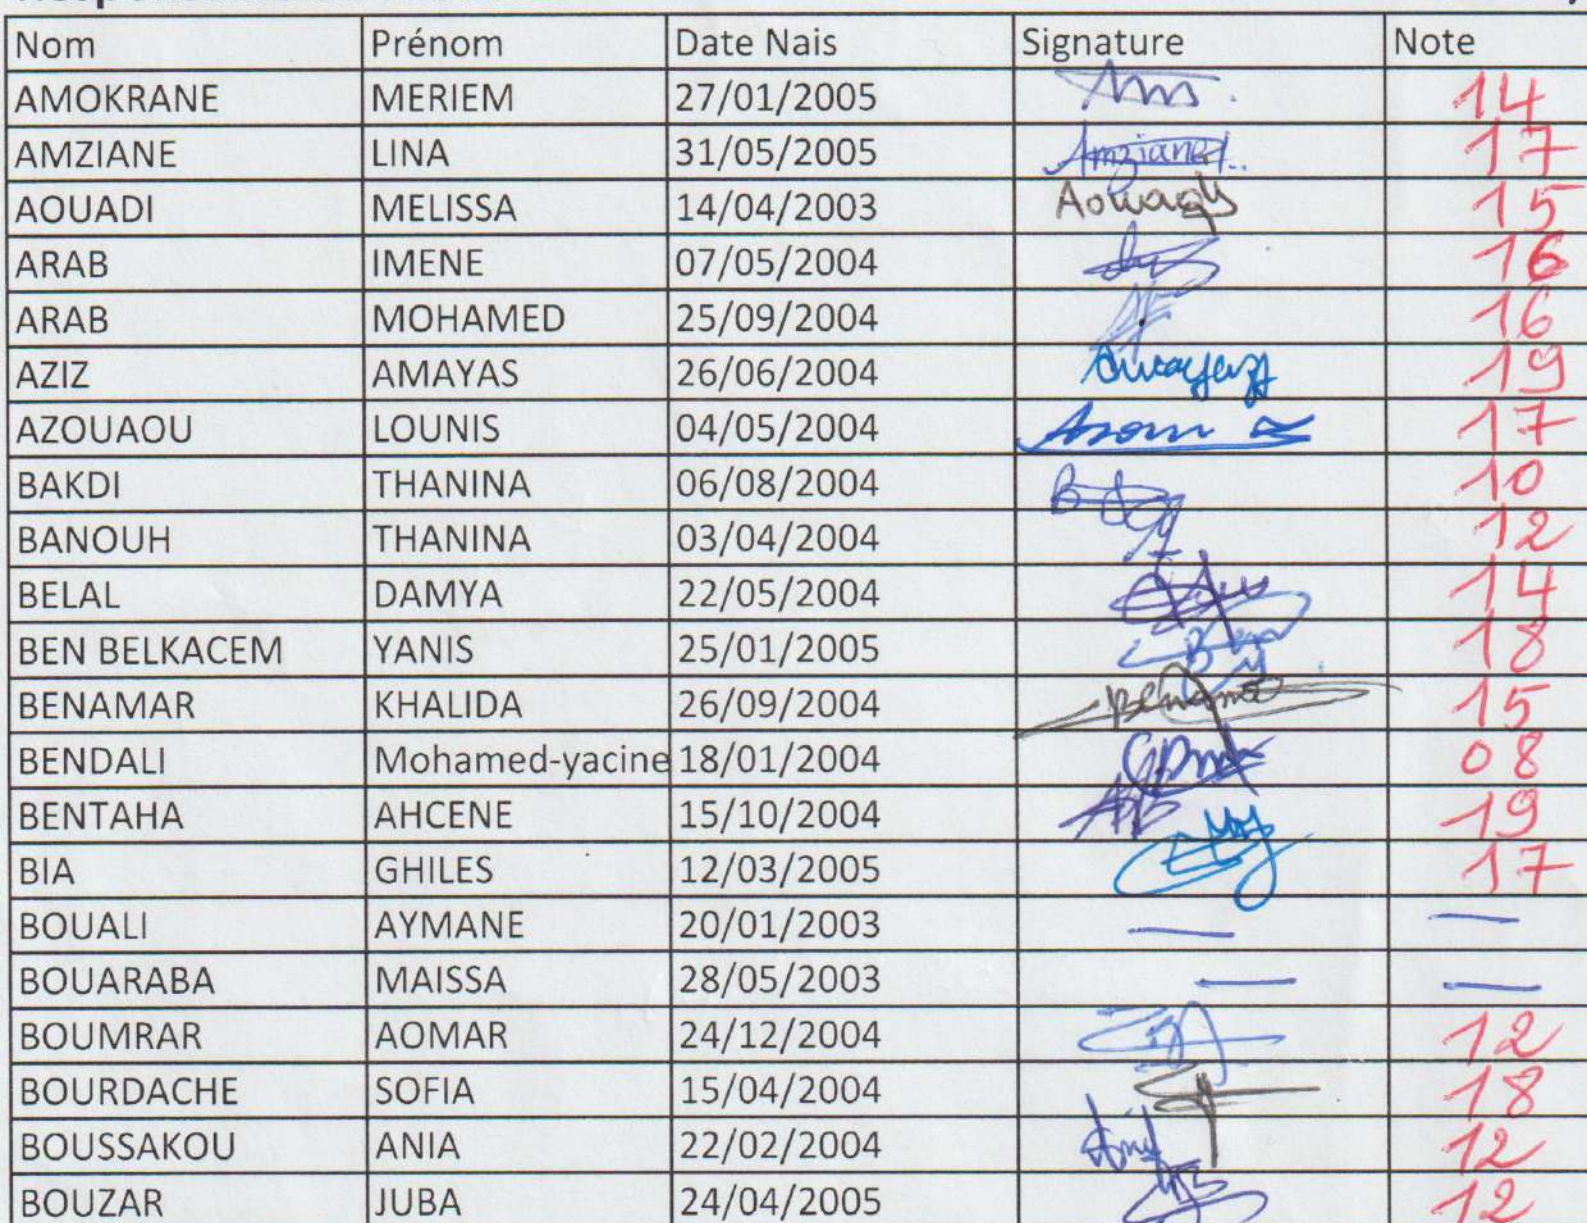 Nom Prénom Date Nais Signature Note
AMOKRANE MERIEM 27/01/2005 14
AMZIANE LINA 31/05/2005 Amziane 17
AOUADI MELISSA 14/04/2003 15
ARAB IMENE 07/05/2004 16
ARAB MOHAMED 25/09/2004 16
AZIZ AMAYAS 26/06/2004 19
AZOUAOU LOUNIS 04/05/2004 17
BAKDI THANINA 06/08/2004 10
BANOUH THANINA 03/04/2004 12
BELAL DAMYA 22/05/2004 14
BEN BELKACEM YANIS 25/01/2005 18
BENAMAR KHALIDA 26/09/2004 15
BENDALI Mohamed-yacine 18/01/2004 08
BENTAHA AHCENE 15/10/2004 19
BIA GHILES 12/03/2005 17
BOUALI AYMANE 20/01/2003 — —
BOUARABA MAISSA 28/05/2003 — —
BOUMRAR AOMAR 24/12/2004 12
BOURDACHE SOFIA 15/04/2004 18
BOUSSAKOU ANIA 22/02/2004 12
BOUZAR JUBA 24/04/2005 12